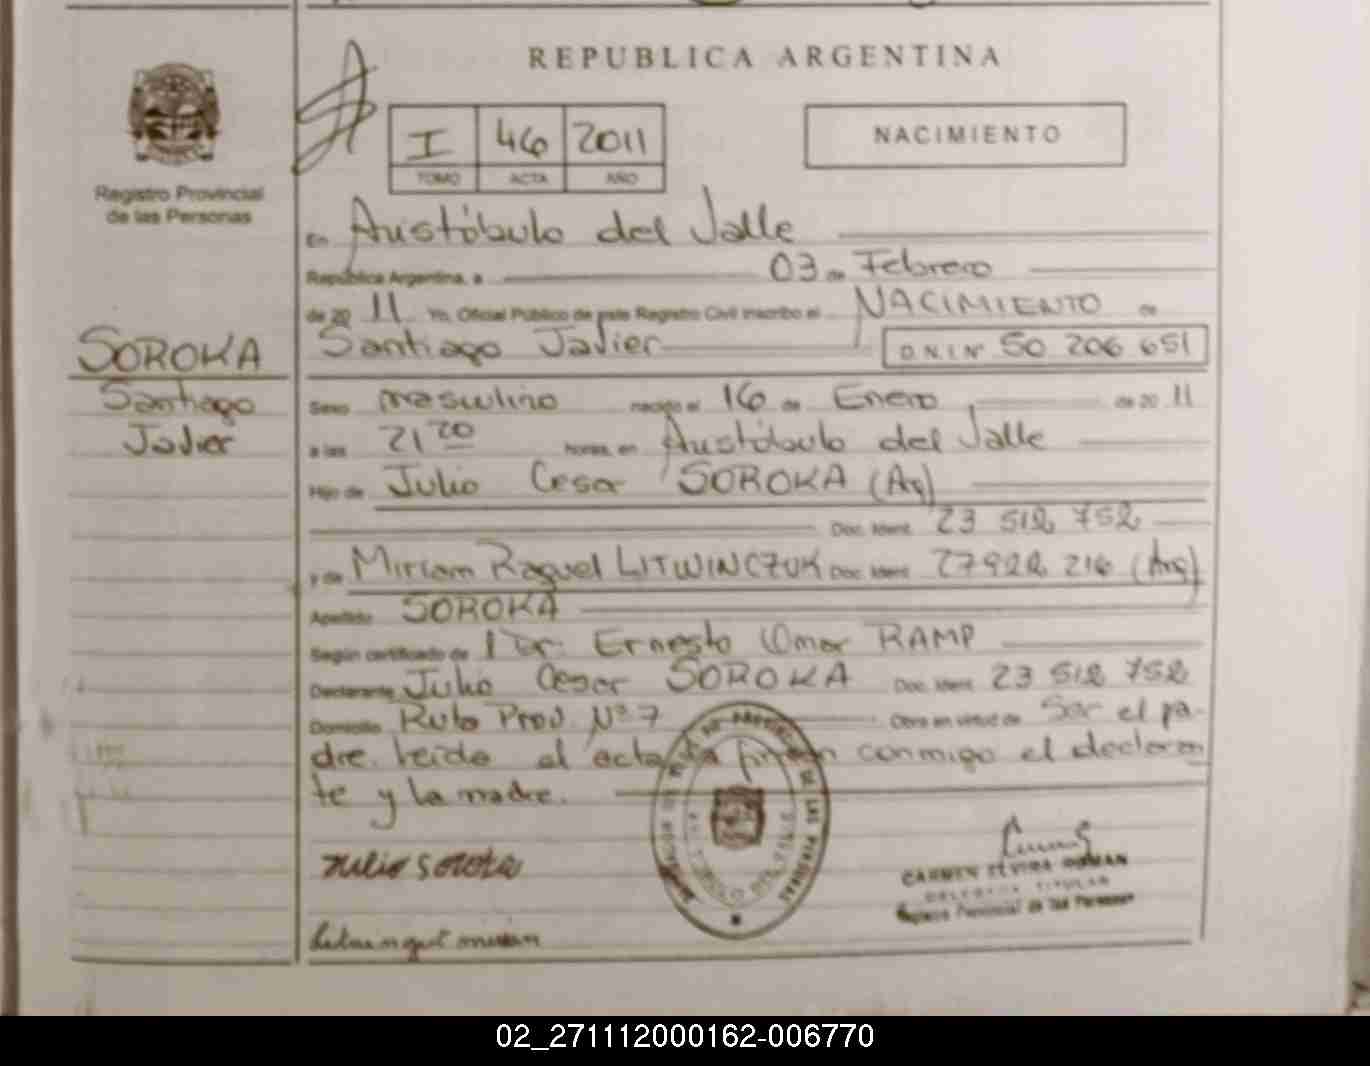 REPUBLICA ARGENTINA
I 46 2011
TOMO ACTA AÑO
NACIMIENTO
Registro Provincial
de las Personas
En Aristóbulo del Valle
República Argentina, a 03 de Febrero
de 20 11 Yo, Oficial Público de este Registro Civil inscribo el NACIMIENTO de
Santiago Javier D.N.I Nº 50 206 651
SOROKA
Santiago
Javier
Sexo masculino nacido el 16 de Enero de 20 11
a las 21 20 horas, en Aristóbulo del Valle
Hijo de Julio Cesar SOROKA (Arg)
Doc. Ident. 23 512 752
y de Miriam Raquel LITWINCZUK Doc. Ident. 27922 216 (Arg)
Apellido SOROKA
Según certificado de Dr. Ernesto Omar RAMP
Declarante Julio Cesar SOROKA Doc. Ident. 23 512 752
Domicilio Ruta Prov. Nº 7 Obra en virtud de Ser el pa-
dre. Leída el acta la firman conmigo el declaran
te y la madre.
Julio Soroka
CARMEN ELVIRA ROMAN
DELEGADA TITULAR
Registro Provincial de las Personas
02_271112000162-006770